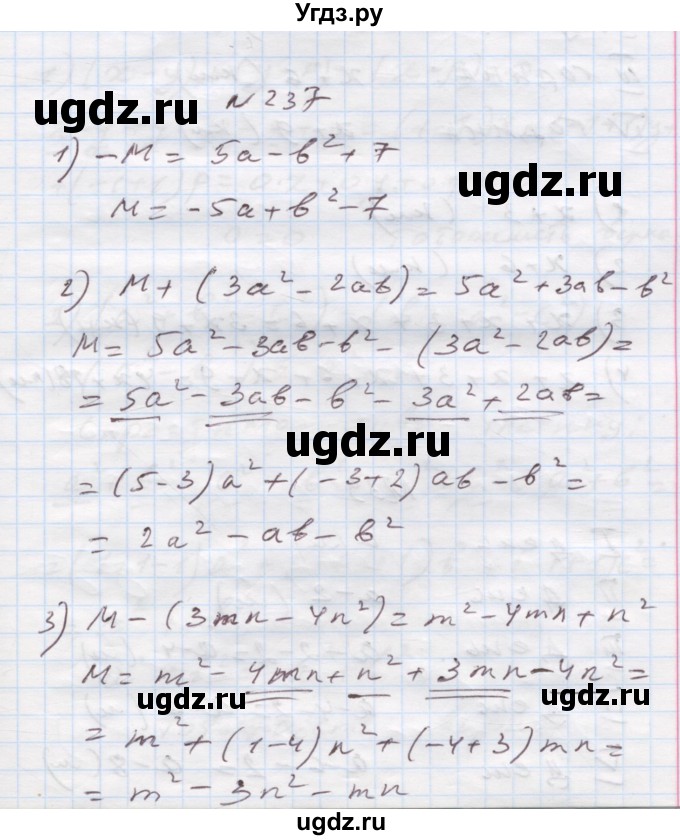 Угдз.ру
ugdz.ru
N 237
1) -M = 5a - b² + 7
ugdz.ru
M = -5a + b² - 7
2) M + (3a² - 2ab) = 5a² + 3ab - b²
M = 5a² - 3ab - b² - (3a² - 2ab) =
= 5a² - 3ab - b² - 3a² + 2ab =
ugdz.ru
= (5-3)a² + (-3+2)ab - b² =
= 2a² - ab - b²
3) M - (3mn - 4n²) = m² - 4mn + n²
M = m² - 4mn + n² + 3mn - 4n² =
ugdz.ru ugdz.ru
= m² + (1-4)n² + (-4+3)mn =
= m² - 3n² - mn
ugdz.ru